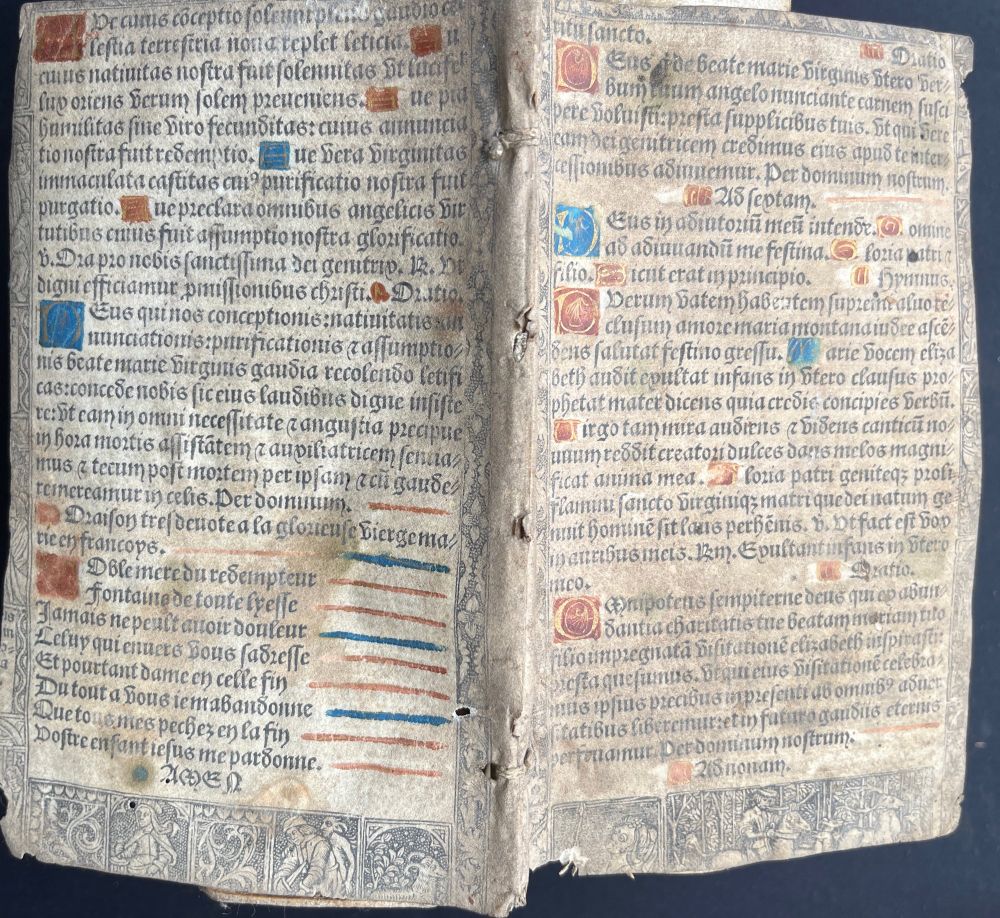 Ve cuius cõceptio solenni pleno gaudio ce-
lestia terrestria noua replet leticia. A u
cuius natiuitas nostra fuit solennitas vt lucifer
lux oriens verum solem preueniens. A ue pia
humilitas sine viro fecunditas: cuius annuncia
tio nostra fuit redemptio. A ue vera virginitas
immaculata castitas cuiꝰ purificatio nostra fuit
purgatio. A ue preclara omnibus angelicis vir
tutibus cuius fuit assumptio nostra glorificatio.
v. Ora pro nobis sanctissima dei genitrix. R. Vt
digni efficiamur ꝓmissionibus christi. Oratio
DEus qui nos conceptionis: natiuitatis: an
nunciationis: purificationis ⁊ assumptio-
nis beate marie virginis gaudia recolendo letifi
cas: concede nobis sic eius laudibus digne insiste
re: vt eam in omni necessitate ⁊ angustia precipue
in hora mortis assistãtem ⁊ auxiliatricem sencia-
mus ⁊ tecum post mortem per ipsam ⁊ cũ gaude-
re mereamur in celis. Per dominum.
Oraison tresdeuote a la glorieuse vierge ma-
rie en francoys.
NOble mere du redempteur
Fontaine de toute lyesse
Jamais ne peult auoir douleur
Celuy qui enuers vous sadresse
Et pourtant dame en celle fin
Du tout a vous ie mabandonne
Que tous mes pechez en la fin
Vostre enfant iesus me pardonne.
AMEN
ritu sancto. Oratio
DEus q̃ de beate marie virginis vtero ver-
bum tuum angelo nunciante carnem susci
pere voluisti: presta supplicibus tuis. Vt qui vere
eam dei genitricem credimus eius apud te inter-
cessionibus adiuuemur. Per dominum nostrum.
Ad sextam.
DEus in adiutoriũ meũ intende. D omine
ad adiuuandũ me festina. G loria patri ⁊
filio. S icut erat in principio. Hymnus.
Verum vatem habentem supreme aluo re-
clusum amore maria montana iudee ascẽ-
dens salutat festino gressu. M arie vocem eliza
beth audit exultat infans in vtero clausus pro-
phetat mater dicens quia credis concipies verbũ.
V irgo tam mira audiens ⁊ videns canticũ no-
uum reddit creatori dulces dans melos magni-
ficat anima mea. G loria patri geniteqꝫ proli
flamini sancto virginiqꝫ matri que dei natum ge
nuit hominẽ sit laus perhẽnis. v. Vt fact est vox
in auribus meis. Rm. Exultant infans in vtero
meo. Oratio.
OMnipotens sempiterne deus qui ex abun-
dantia charitatis tue beatam mariam tuo
filio impregnatã visitatione elizabeth inspirasti:
presta quesumus. vt qui eius visitationẽ celebra-
mus ipsius precibus in presenti ab omnibꝰ aduer
sitatibus liberemur: et in futuro gaudiis eternis
perfruamur. Per dominum nostrum.
Ad nonam.